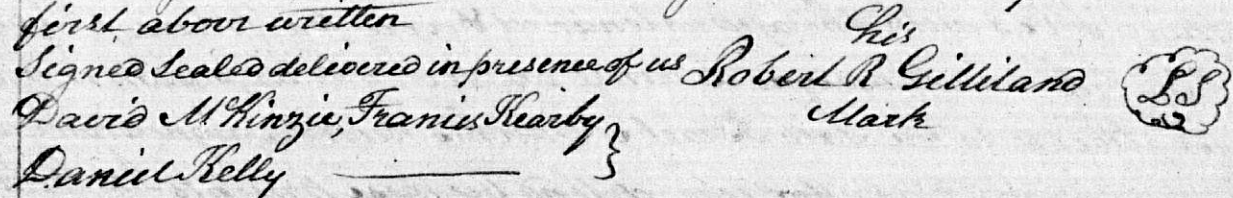 first above written
his
Signed Sealed delivered in presence of us Robert R Gilliland LS
David McKinzie, Francis Kearby Mark
Daniel Kelly